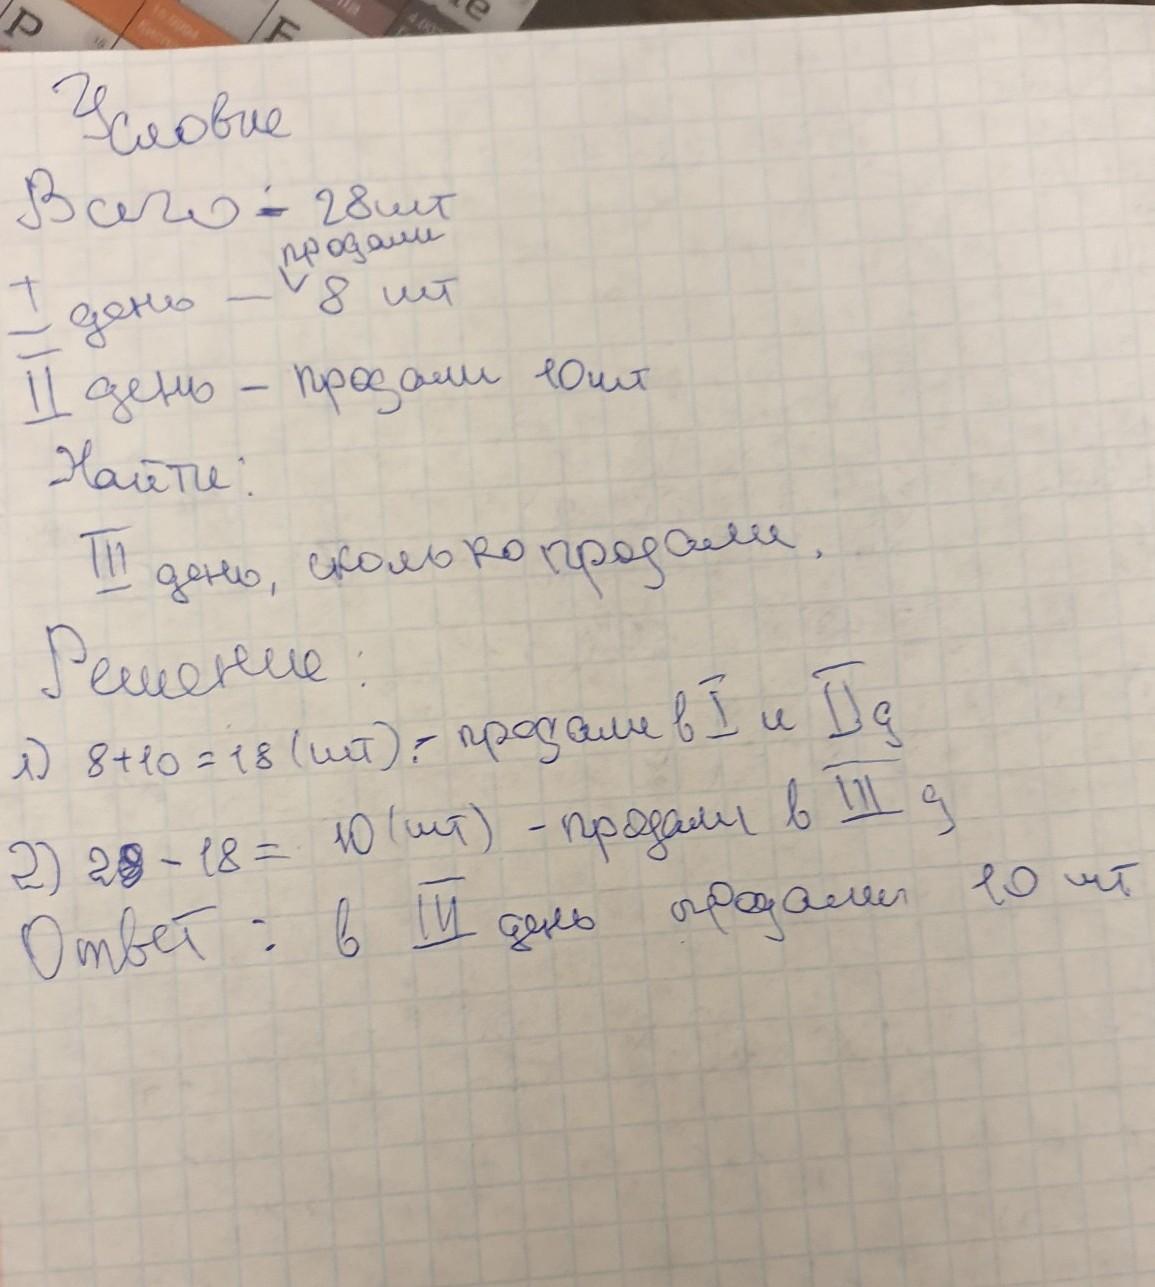 P
F
Условие
Всего - 28шт
продали
I день - 8 шт
II день - продали 10шт
Найти:
III день, сколько продали.
Решение:
1) 8+10=18 (шт) - продали в I и II д
2) 28-18= 10 (шт) - продали в III д
Ответ: в III день продали 10 шт